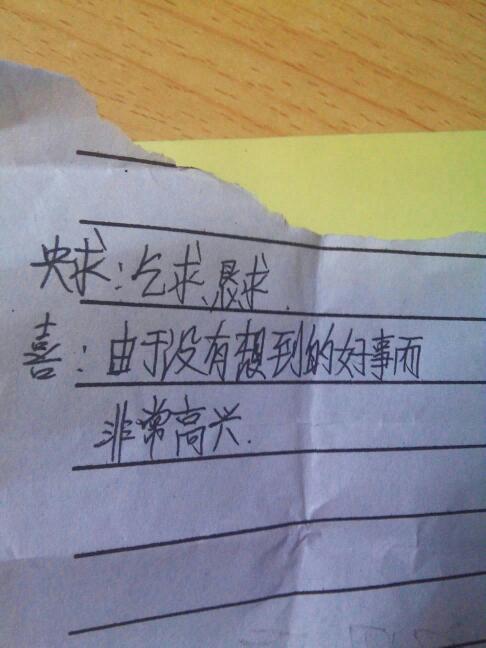 央求:乞求、恳求.
喜:由于没有想到的好事而
非常高兴.